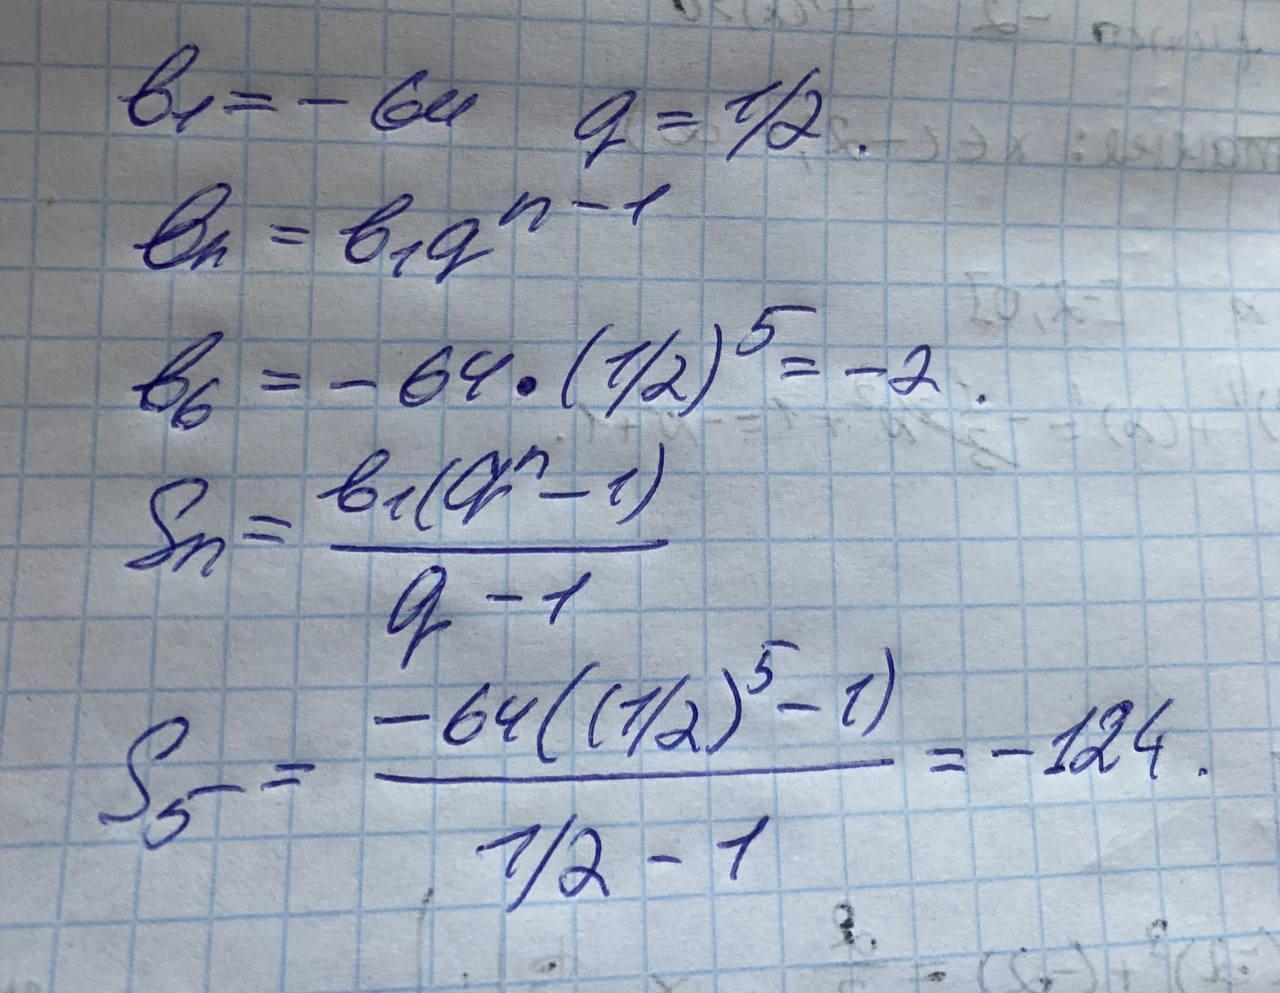 b₁ = - 64 q = 1/2.
bₙ = b₁qⁿ⁻¹
b₆ = - 64 · (1/2)⁵ = -2.
Sₙ = b₁(qⁿ - 1) / q - 1
S₅ = -64((1/2)⁵ - 1) / 1/2 - 1 = -124.